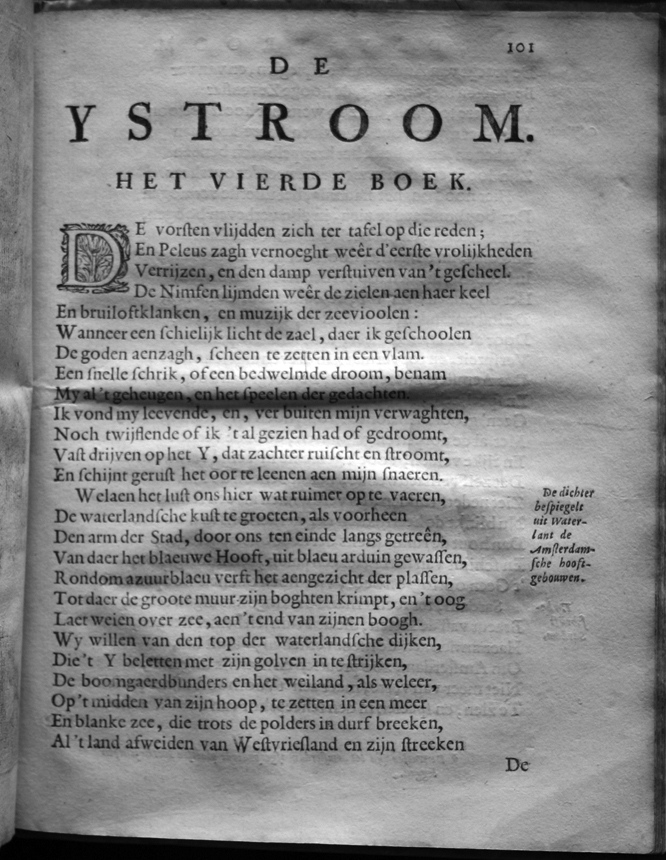 101
DE
YSTROOM.
HET VIERDE BOEK.
DE vorſten vlijdden zich ter tafel op die reden;
En Peleus zagh vernoeght weêr d'eerſte vrolijkheden
Verrijzen, en den damp verſtuiven van 't geſcheel.
De Nimfen lijmden weêr de zielen aen haer keel
En bruiloftklanken, en muzijk der zeevioolen:
Wanneer een ſchielijk licht de zael, daer ik geſchoolen
De goden aenzagh, ſcheen te zetten in een vlam.
Een ſnelle ſchrik, of een bedwelmde droom, benam
My al 't geheugen, en het ſpeelen der gedachten.
Ik vond my leevende, en, ver buiten mijn verwaghten,
Noch twijflende of ik 't al gezien had of gedroomt,
Vaſt drijven op het Y, dat zachter ruiſcht en ſtroomt,
En ſchijnt geruſt het oor te leenen aen mijn ſnaeren.
Welaen het luſt ons hier wat ruimer op te vaeren,
De waterlandſche kuſt te groeten, als voorheen
Den arm der Stad, door ons ten einde langs getreên,
Van daer het blaeuwe Hooft, uit blaeu arduin gewaſſen,
Rondom azuurblaeu verft het aengezicht der plaſſen,
Tot daer de groote muur zijn boghten krimpt, en 't oog
Laet weien over zee, aen 't end van zijnen boogh.
Wy willen van den top der waterlandſche dijken,
Die 't Y beletten met zijn golven in te ſtrijken,
De boomgaerdbunders en het weiland, als weleer,
Op 't midden van zijn hoop, te zetten in een meer
En blanke zee, die trots de polders in durf breeken,
Al 't land afweiden van Weſtvrieſland en zijn ſtreeken
De
De dichter
beſpiegelt
uit Water-
lant de
Amſterdam-
ſche hooft-
gebouwen.